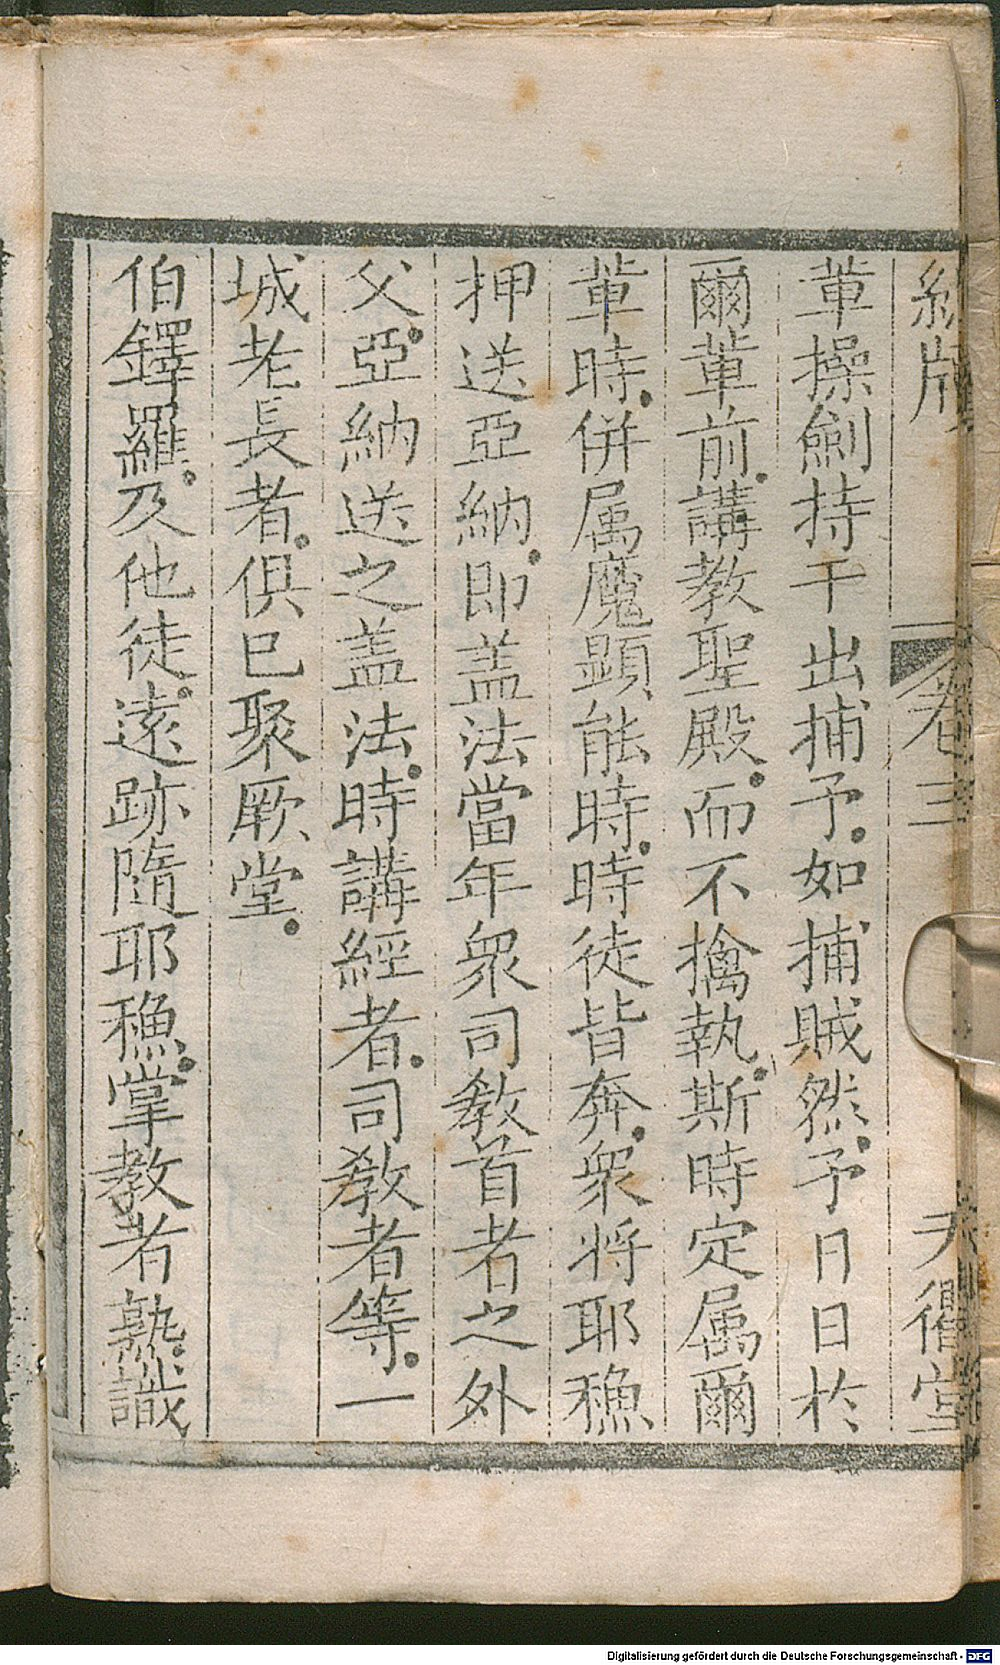 卷三
軰操劍持干出捕予。如捕賊然。予日日於
爾軰前。講教聖殿。而不擒執。斯時定属爾
軰時。併属魔顕能時。時徒皆奔。衆将耶穌
押送亞納。即盖法當年衆司教首者之外
父。亞納送之盖法。時講經者。司教者等。一
城老長者。俱已聚厥堂。
伯鐸羅。及他徒。遠跡隨耶穌。掌教者熟識
Digitalisierung gefördert durch die Deutsche Forschungsgemeinschaft - DFG